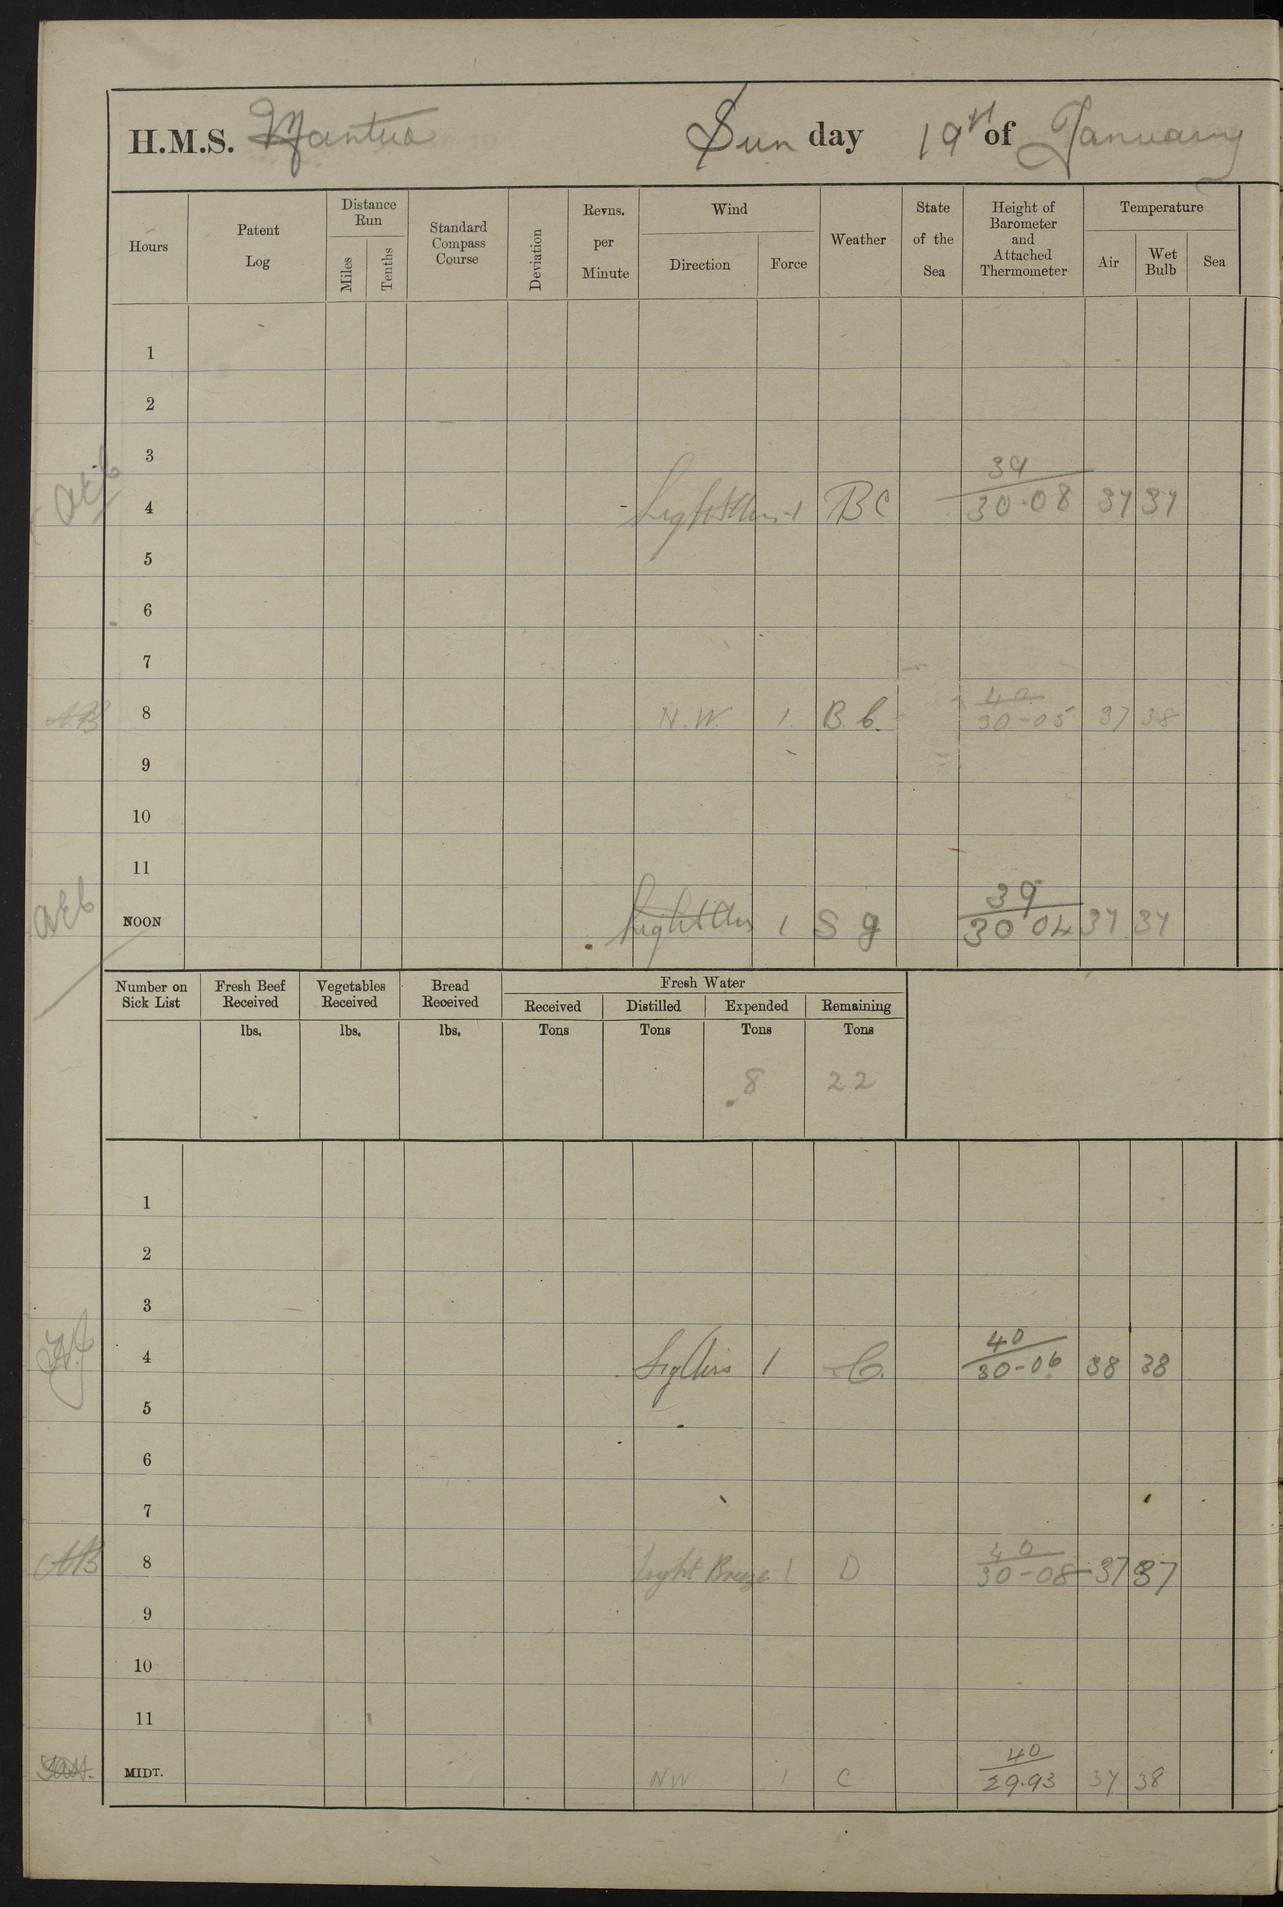 H.M.S. Mantua Sun day 19th of January
Hours Patent Log Distance Run Miles Tenths Standard Compass Course Deviation Revns. per Minute Wind Direction Force Weather State of the Sea Height of Barometer and Attached Thermometer Temperature Air Wet Bulb Sea
1
2
3
39
4 1 BC 30.08 37 37
5
6
7
40
AB 8 N.W. 1 B.C. 30-05 37 38
9
10
11
39
NOON Light Airs 1 S g 30 04 37 37
Number on Sick List Fresh Beef Received Vegetables Received Bread Received Fresh Water
Received Distilled Expended Remaining
lbs. lbs. lbs. Tons Tons Tons Tons
8 22
1
2
3
40
4 1 C. 30-06 38 38
5
6
7
40
AB 8 Light Breeze 1 D 30-08 37 37
9
10
11
40
MIDT. NW 1 C 29.93 37 38